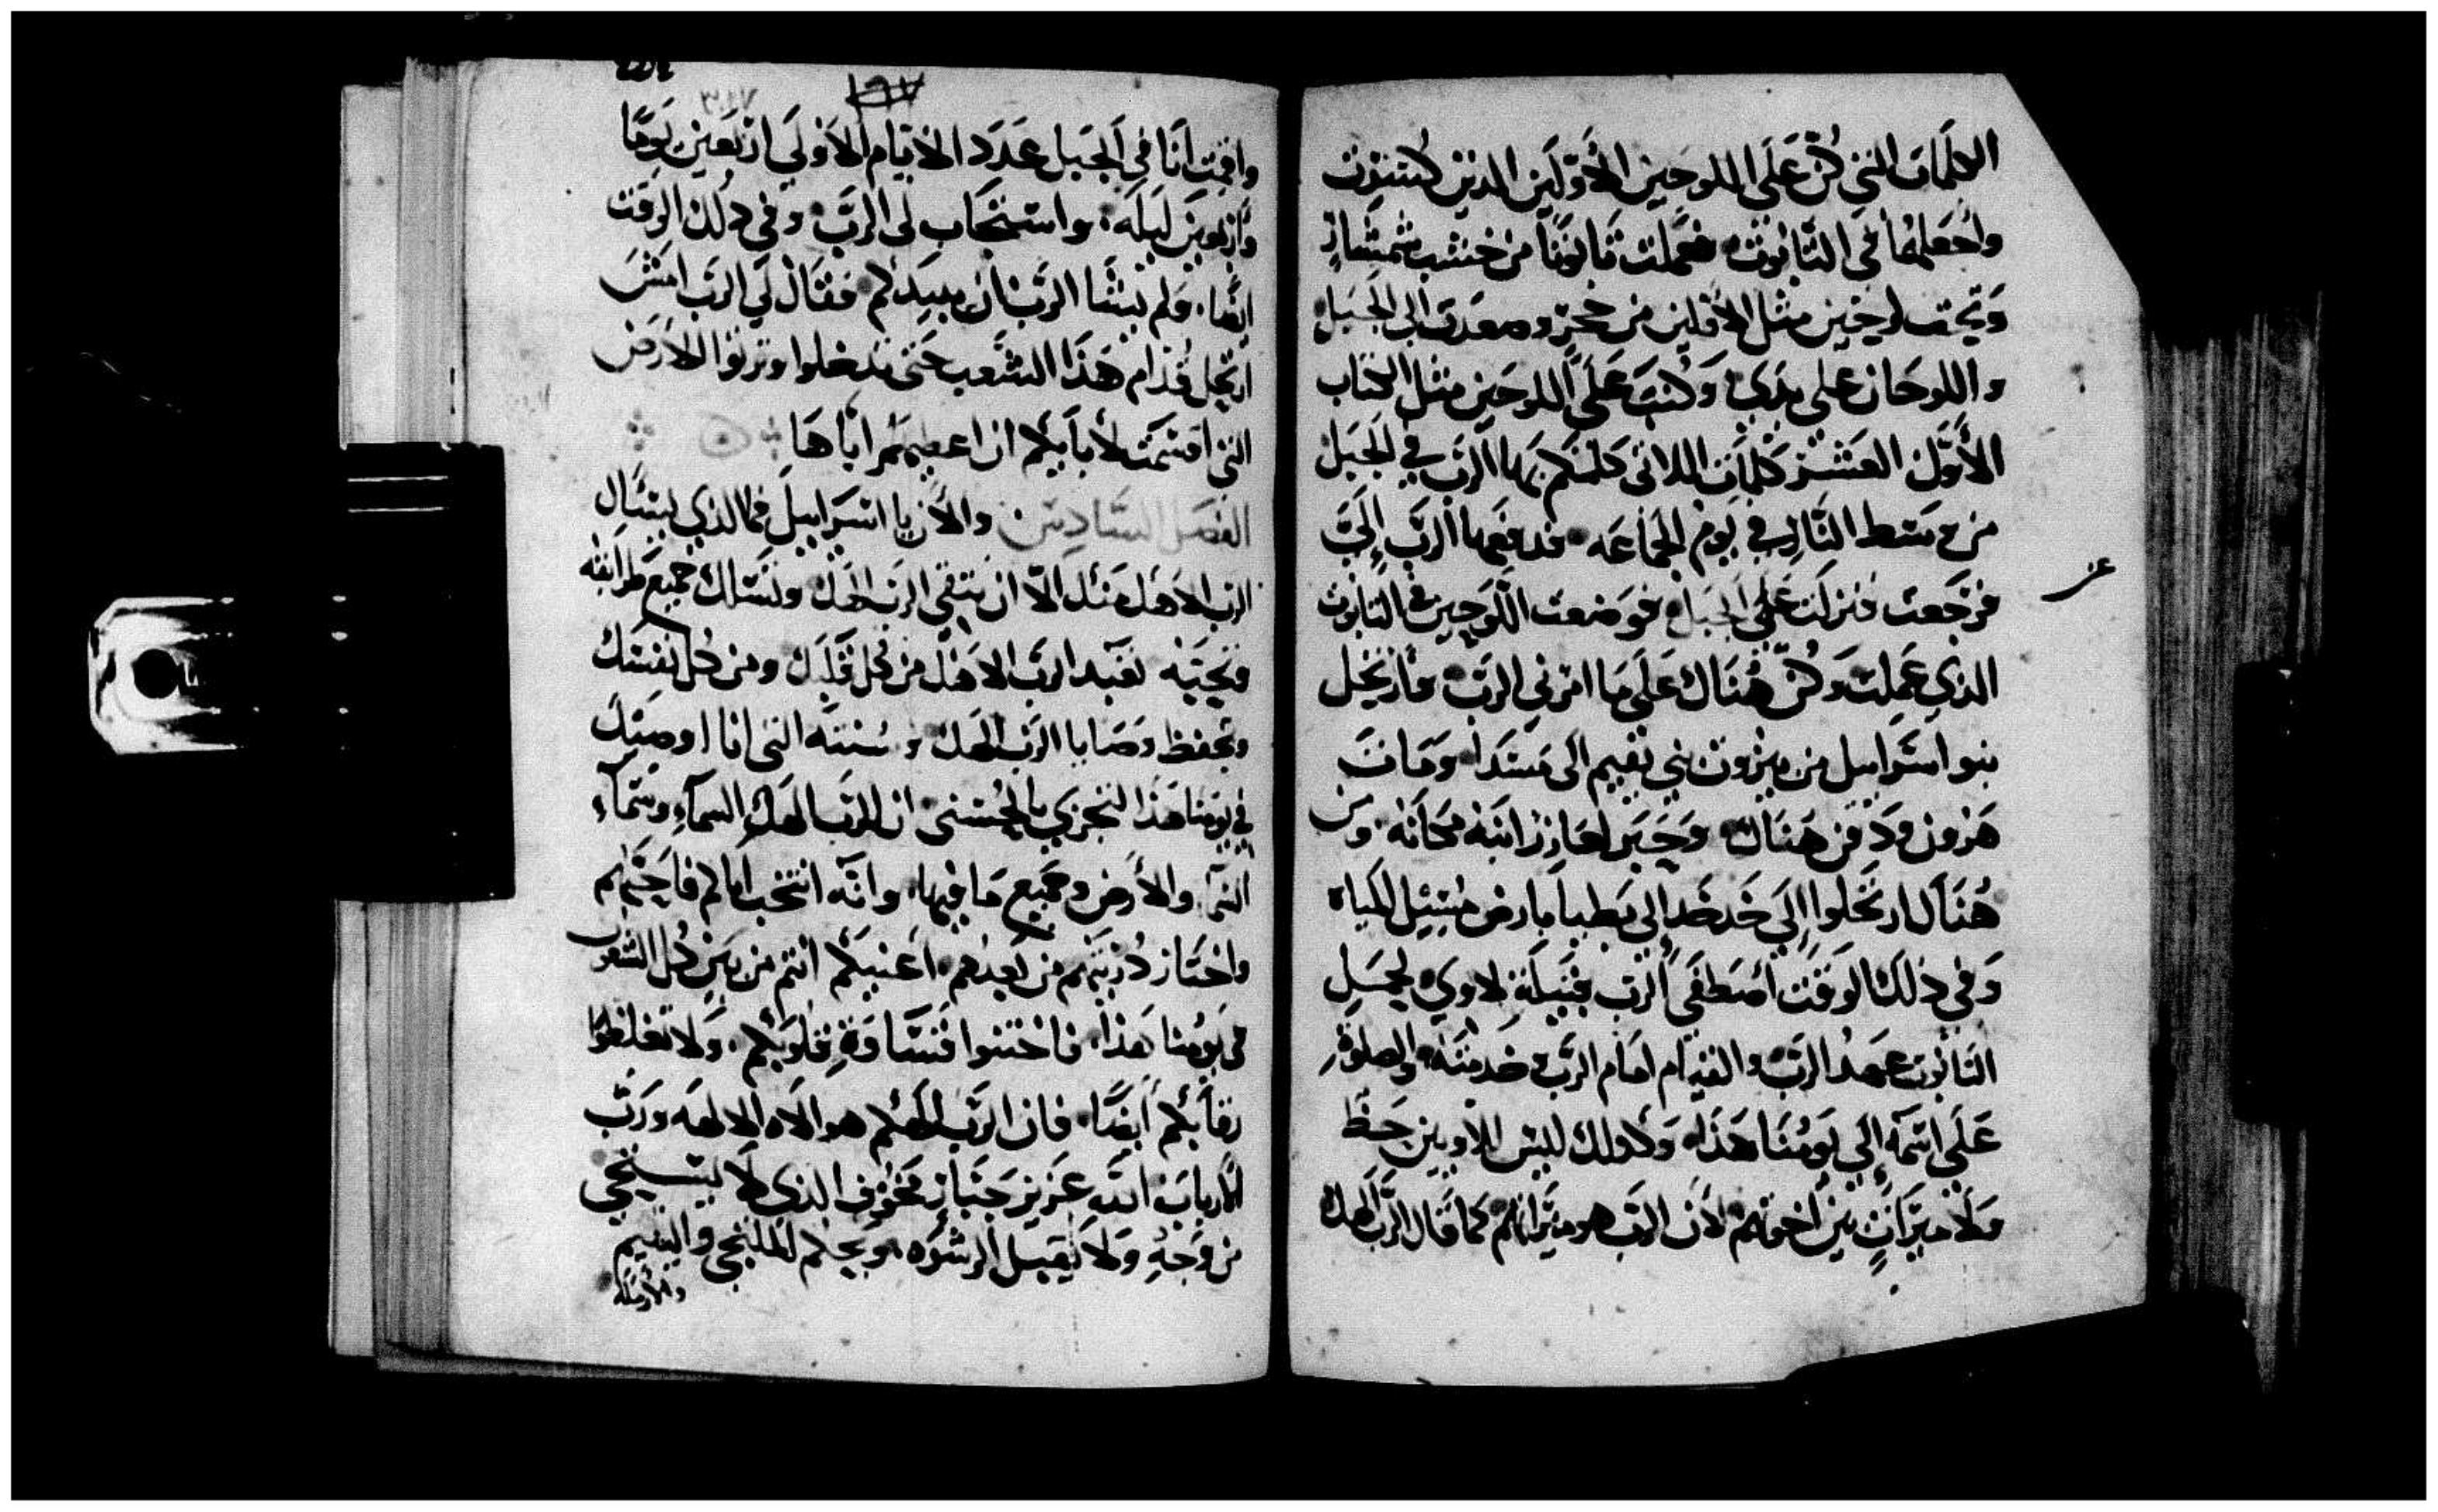 الكلمات التي كن على اللوحين الأولين الذين كسرت
واجعلهما في التابوت فعملت تابوتًا من خشب شمشار
ونحت لوحين مثل الأولين من حجر وصعدت الى الجبل
واللوحان على يدي وكتب على اللوحين مثل الكتاب
الأول العشر كلمات اللاتي كلمكم بها الرب في الجبل
من وسط النار في يوم الجماعه فدفعها الرب إلي
فرجعت فنزلت على الجبل فوضعت اللوحين في التابوت
الذي عملت وكن هناك على ما امرني الرب فارتحل
بنو اسرايل من بيروت بني يقيم الى مسدا ومات
هرون ودفن هناك وحبر لعازر ابنه مكانه ومن
هناك ارتحلوا إلى خدخد الى يطباما بارض مسيل المياه
وفي ذلك الوقت اصطفى الرب قبيلة لاوي لحمل
التابوت عهد الرب والقيام امام الرب وخدمته والصلوة
على اسمه إلى يومنا هذا وكذلك ليس للاويين حظ
ولا ميراث بين اخوتهم لأن الرب هو ميراثهم كما قال الرب الهك
واقمت انا في الجبل عدد الايام الاولى اربعين يومًا
واربعين ليله واستجاب لى الرب وفي ذلك الوقت
ايضا ولم يشا الرب ان يبيدكم فقال لي الرب امش
ارتحل قدام هذا الشعب حتى تدخلوا وترثوا الارض
التي اقسمت لأباىكم ان اعطيهم اياها
الفصل السادس والأن يا اسراييل فما الذي يسال
الرب الاهك منك الا ان تتقي الرب الهك وتسلك جميع طرايقه
وتحبه تعبد الرب الاهك من كل قلبك ومن كل نفسك
وتحفظ وصايا الرب الهك وسنته التي انا اوصيك
في يومنا هذا لتجزي بالحسنى ان للرب الهك السماء وسماء
السما والأرض وجميع ما فيها وانه انتخب اباكم فاحبهم
واختار ذريتهم من بعدهم اعنيكم انتم من بين كل الشعوب
في يومنا هذا فاختتنوا قساوة قلوبكم ولا تغلظوا
رقابكم أيضًا فان الرب الهكم هو الاه الالهه ورب
الارباب الله عزيز جبار مخوف الذي لا يستحي
من وجه ولا يقبل الرشوه ويحكم للملتجي واليتيم
والارمله